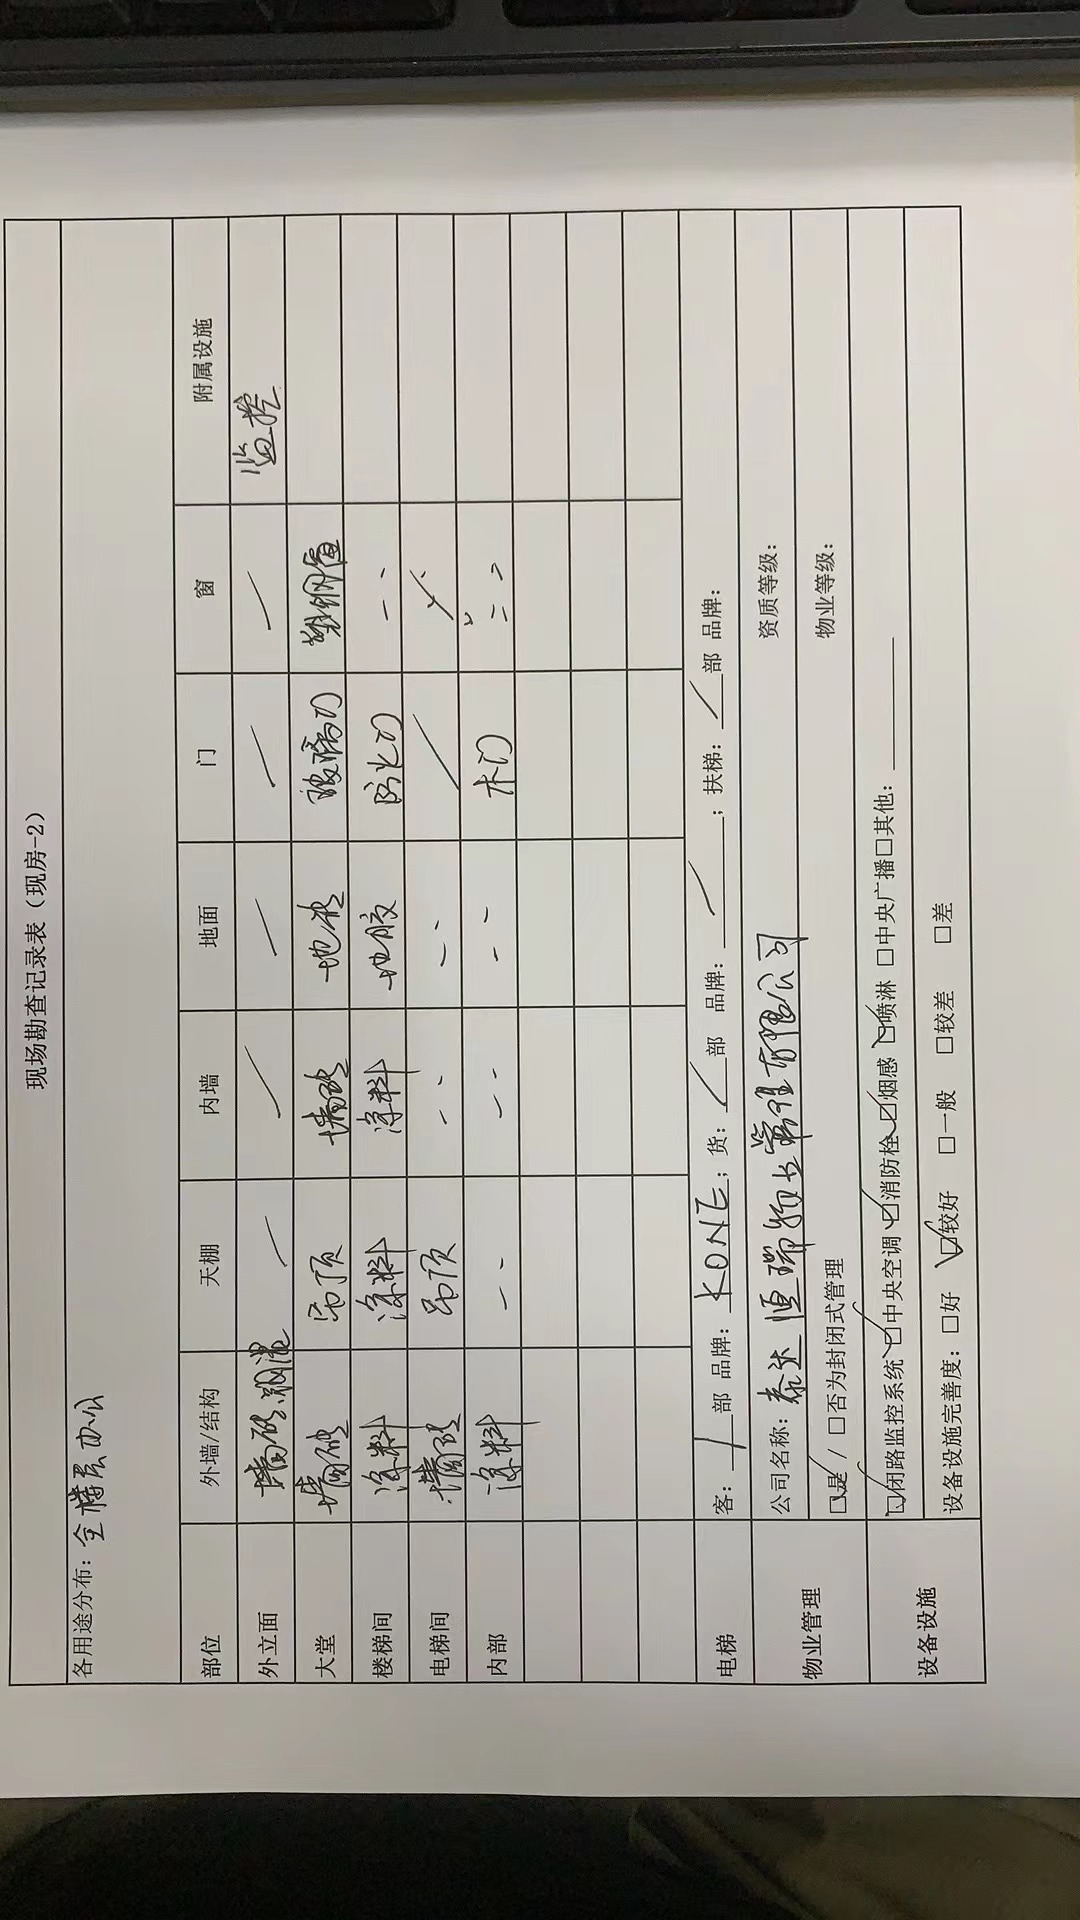 现场勘查记录表（现房-2）
各用途分布：全楼层办公
部位 外墙/结构 天棚 内墙 地面 门 窗 附属设施
外立面 墙砖.钢混 / / / / / 监控
大堂 墙砖 吊顶 墙砖 地板 玻璃门 塑钢窗
楼梯间 涂料 涂料 涂料 地胶 防火门 --
电梯间 墙砖 吊顶 -- -- / /
内部 涂料 -- -- -- 木门
电梯 客：1部 品牌：KONE；货：/部 品牌：/；扶梯：/部 品牌：
物业管理 公司名称：泰达恒瑞物业管理有限公司 资质等级：
☑是/□否为封闭式管理 物业等级：
设备设施 ☑闭路监控系统☑中央空调☑消防栓☑烟感☑喷淋□中央广播□其他：
设备设施完善度：□好 ☑较好 □一般 □较差 □差